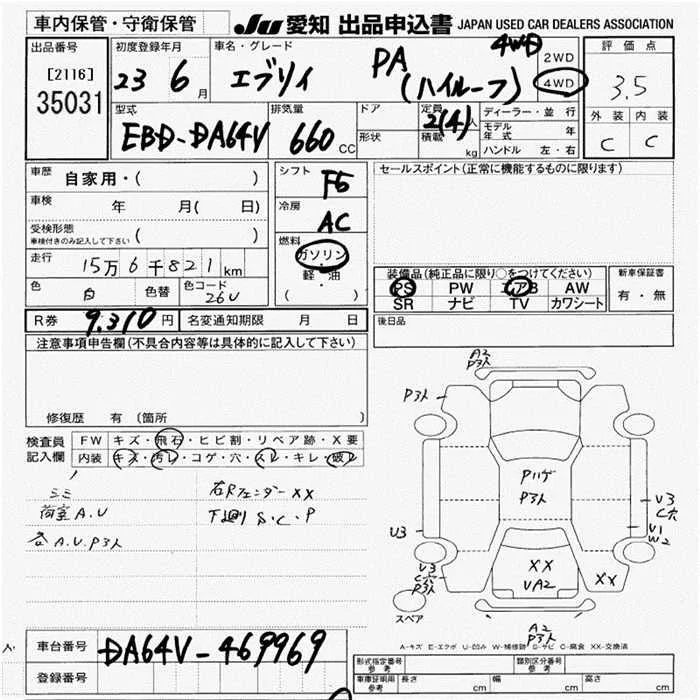 車内保管・守衛保管
JU 愛知 出品申込書 JAPAN USED CAR DEALERS ASSOCIATION
出品番号 初度登録年月 車名・グレード 4WD 2WD 評価点
[2116] 23 6月 エブリイ PA (ハイルーフ) 4WD 3.5
35031
型式 排気量 ドア 定員 2(4)人 ディーラー・並行 外装 内装
EBD-DA64V 660CC 形状 積載 kg モデル年式 年 C C
ハンドル 左・右
車歴 自家用・( ) シフト F5 セールスポイント(正常に機能するものに限ります)
車検 年 月( 日) 冷房 AC
受検形態 車検付きのみ記入して下さい ( ) 燃料 ガソリン・軽・油 ( )
走行 15万6千821km
装備品(純正品に限り○をつけてください) 新車保証書
色 白 色替 色コード 26U PS PW エアB AW 有・無
SR ナビ TV カワシート
R券 9,310円 名変通知期限 月 日 後日品
注意事項申告欄(不具合内容等は具体的に記入して下さい)
修復歴 有 (箇所
検査員記入欄 FW キズ・飛石・ヒビ割・リペア跡・X要
内装 キズ・汚レ・コゲ・穴・スレ・キレ・破レ
ミミ 右Rフェンダー XX
荷室A.U 下廻り S.C.P
各A.U.P3人
A2
P3人
P3人
Pハゲ
P3人
U3
V3
C穴
V1
W2
V3
C穴
P3人
XX
VA2
XX
スペア
A2
P3人
A-キズ E-エクボ U-凹み W-補修跡 S-サビ C-腐食 XX-交換済
車台番号 DA64V-469969
登録番号
形式指定番号 参考 類別区分番号 参考
車庫証明用 参考 長さ cm 幅 cm 高さ cm